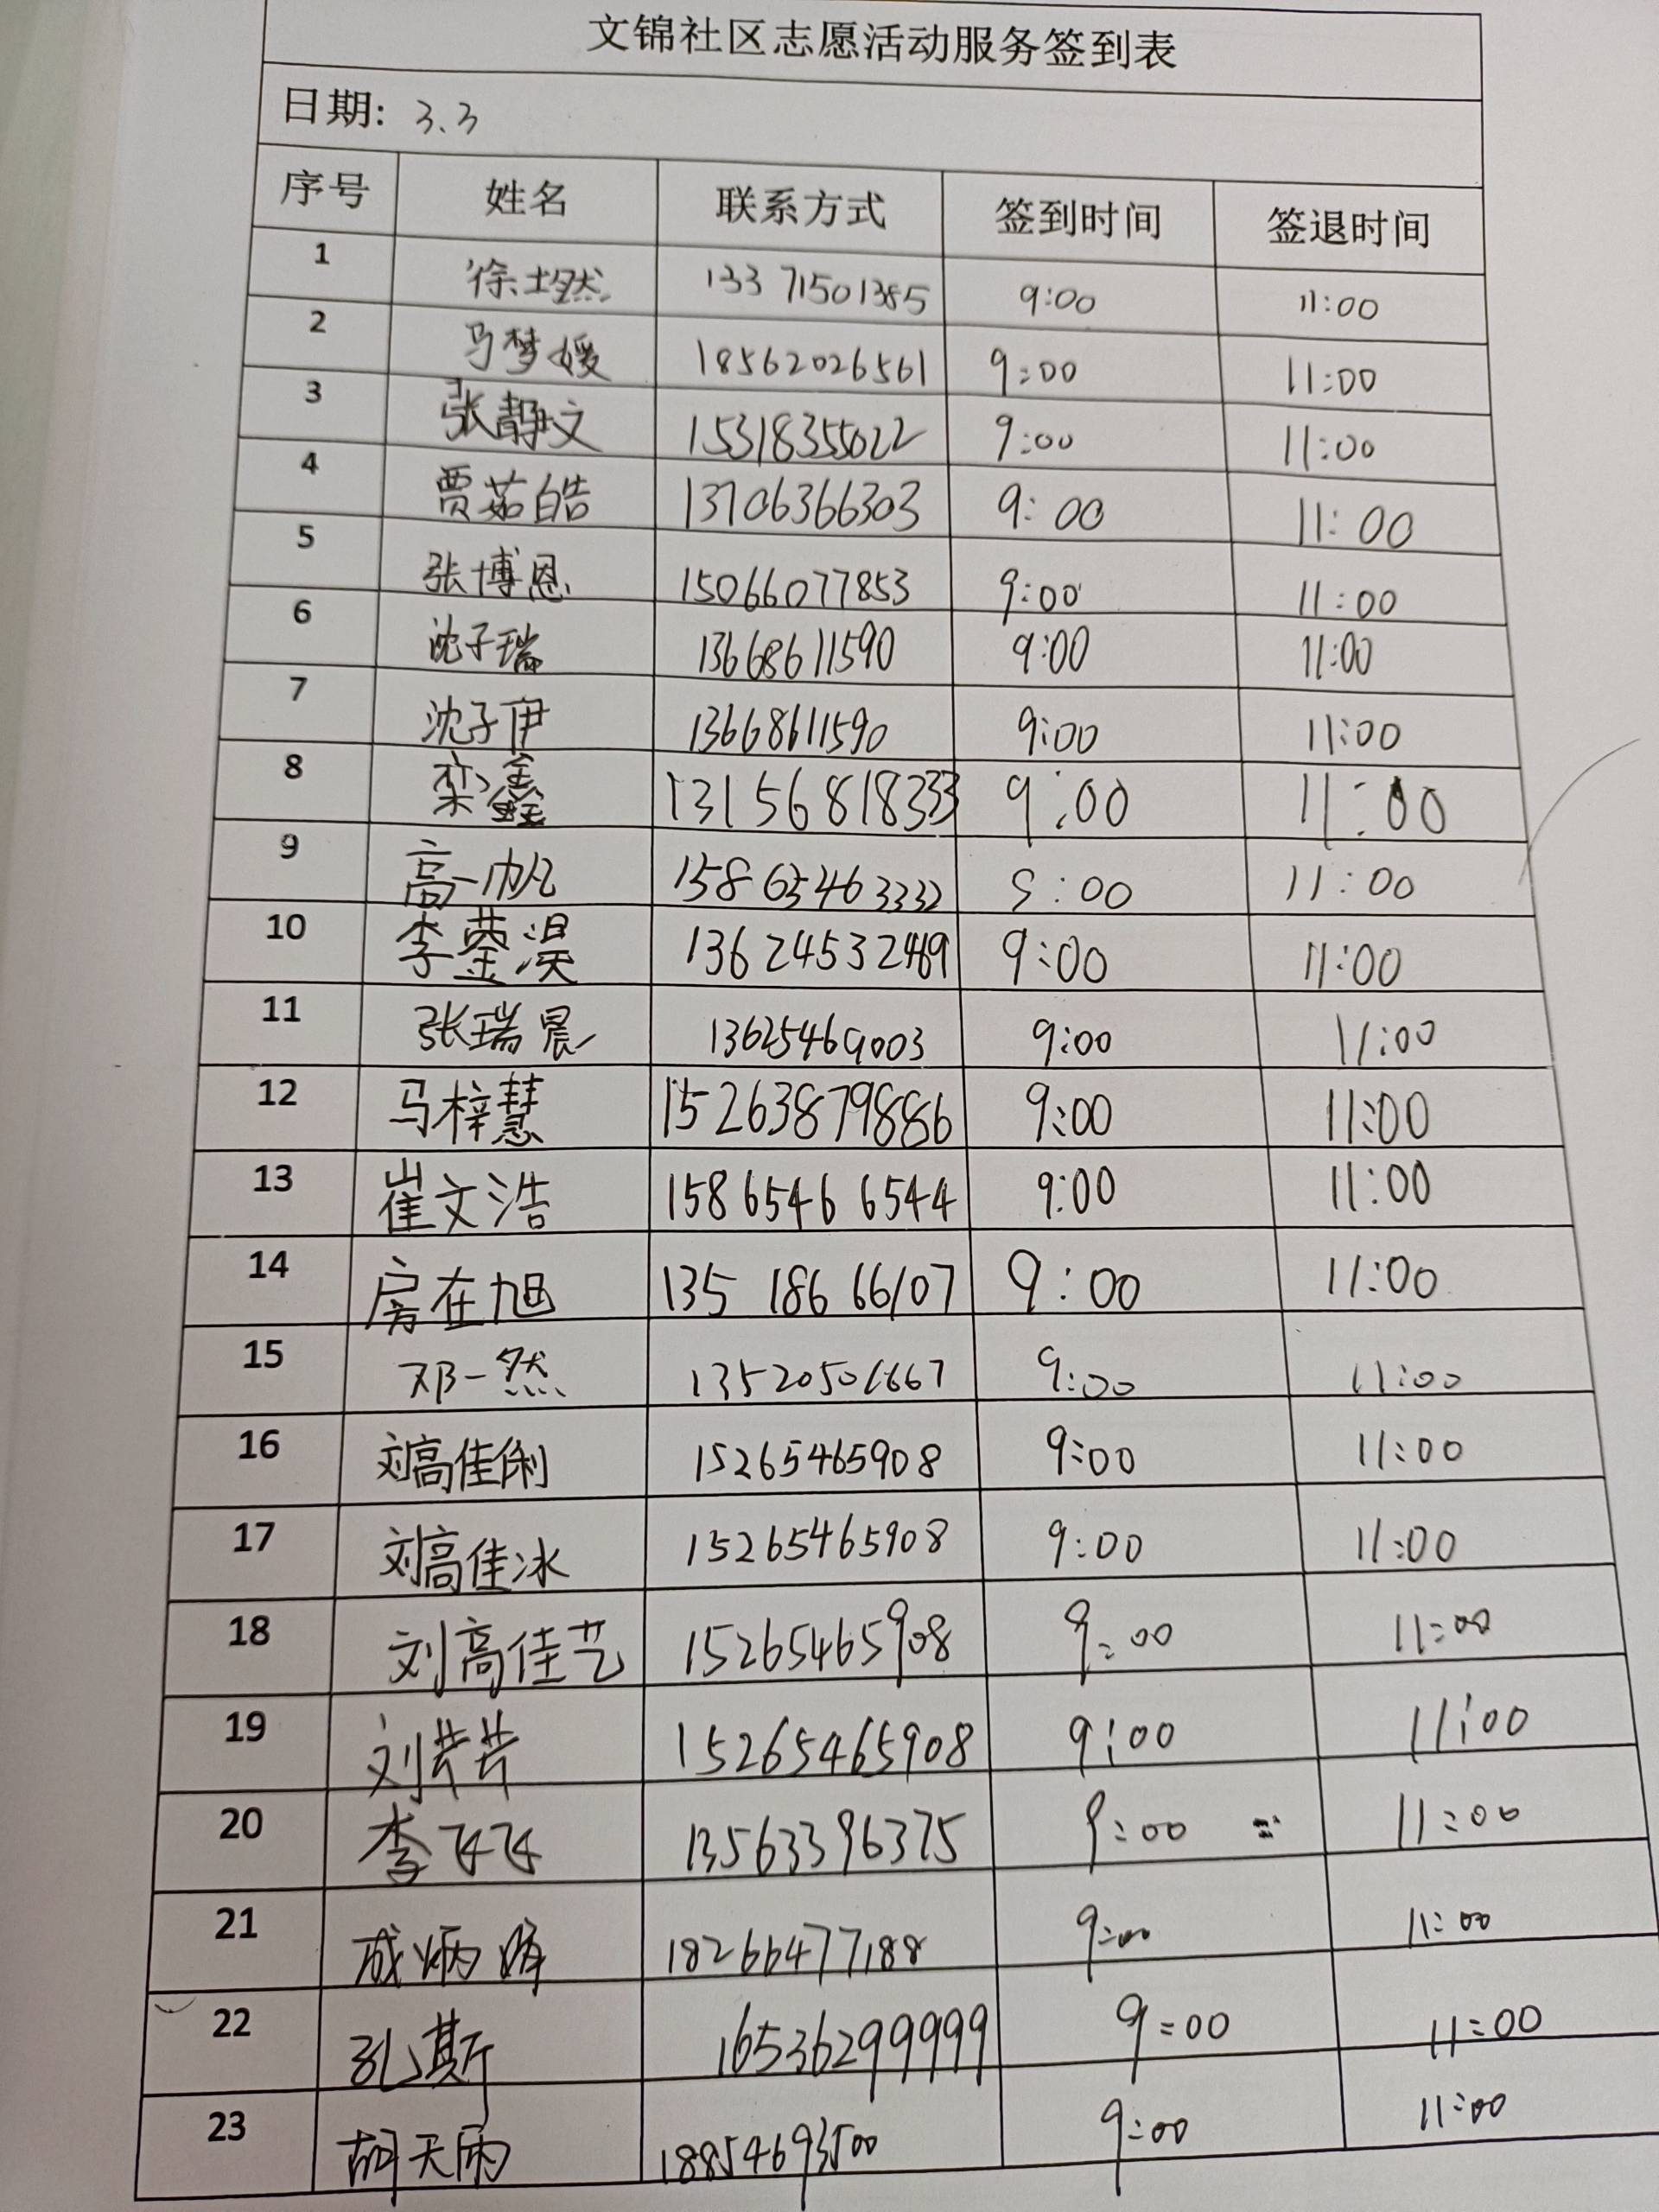 文锦社区志愿活动服务签到表
日期: 3.3
序号 姓名 联系方式 签到时间 签退时间
1 徐 然 13371501385 9:00 11:00
2 马梦媛 18562026561 9:00 11:00
3 张静文 15318355022 9:00 11:00
4 贾茹皓 13706366303 9:00 11:00
5 张博恩 15066077853 9:00 11:00
6 沈子瑞 13668611590 9:00 11:00
7 沈子伊 13668611590 9:00 11:00
8 栾鑫 13156818333 9:00 11:00
9 高一帆 15865463332 9:00 11:00
10 李蓥淏 9:00 11:00
11 张瑞晨 13625469003 9:00 11:00
12 马梓慧 15263879886 9:00 11:00
13 崔文浩 15865466544 9:00 11:00
14 房在旭 13518666107 9:00 11:00
15 邓一然 13520501667 9:00 11:00
16 刘高佳俐 15265465908 9:00 11:00
17 刘高佳冰 15265465908 9:00 11:00
18 刘高佳艺 15265465908 9:00 11:00
19 刘芹芹 15265465908 9:00 11:00
20 李飞飞 13563396375 9:00 11:00
21 成炳峰 18266477188 9:00 11:00
22 孔斯 16536299999 9:00 11:00
23 胡天雨 18854693500 9:00 11:00